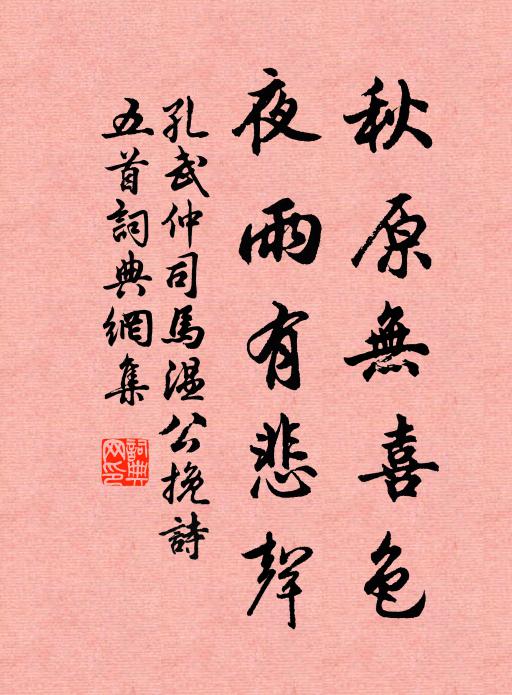 秋原無喜色
夜雨有悲聲
孔武仲司馬温公挽詩
五首詞典網集
詞典網印